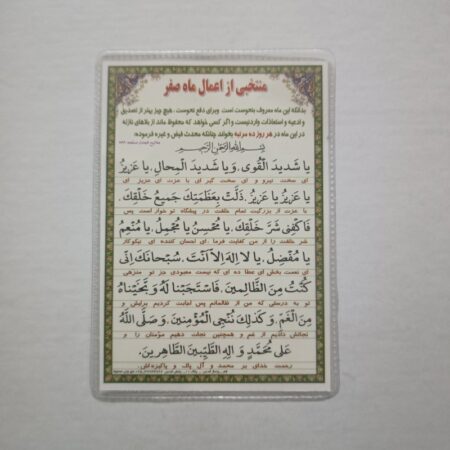 منتخبی از اعمال ماه صفر
بدانکه این ماه معروف بنحوست است وبرای دفع نحوست، هیچ چیز بهتر از تصدیق
و ادعیه و استعاذات واردنیست و اگر کسی خواهد که محفوظ ماند از بلاهای نازله
در این ماه در هر روز ده مرتبه بخواند چنانکه محدث فیض و غیره فرموده:
بسم الله الرحمن الرحیم
یا شَدیدَ الْقُوی، وَ یا شَدیدَ الْمِحالِ، یا عَزیزُ
ای سخت نیرو و ای سخت گیر ای با عزت ای عزیز ای
یا عَزیزُ یا عَزیزُ، ذَلَّتْ بِعَظَمَتِكَ جَمیعُ خَلْقِكَ،
با عزت از بزرگیت تمام خلقت در پیشگاه تو خوار است پس
فَاکْفِنی شَرَّ خَلْقِكَ، یا مُحْسِنُ یا مُجْمِلُ، یا مُنْعِمُ
شر خلقت را از من کفایت فرما ای احسان کننده ای نیکوکار
یا مُفْضِلُ، یا لا اِلهَ اِلاّ اَنْتَ، سُبْحانَكَ اِنّی
ای نعمت بخش ای عطا ده ای که نیست معبودی جز تو منزهی
کُنْتُ مِنَ الظّالِمینَ، فَاسْتَجَبْنا لَهُ وَ نَجَّیْناهُ
تو به درستی که من از ظالمانم پس اجابت کردیم برایش و
مِنَ الْغَمِّ، وَ کَذلِكَ نُنْجِی الْمُؤْمِنینَ، وَ صَلَّی اللهُ
نجاتش دادیم از غم و همچنین نجات دهیم مؤمنان را و
عَلی مُحَمَّدٍ وَ الِهِ الطَّیِّبینَ الطّاهِرینَ.
رحمت خدای بر محمد و آل پاک و پاکیزه‌اش.